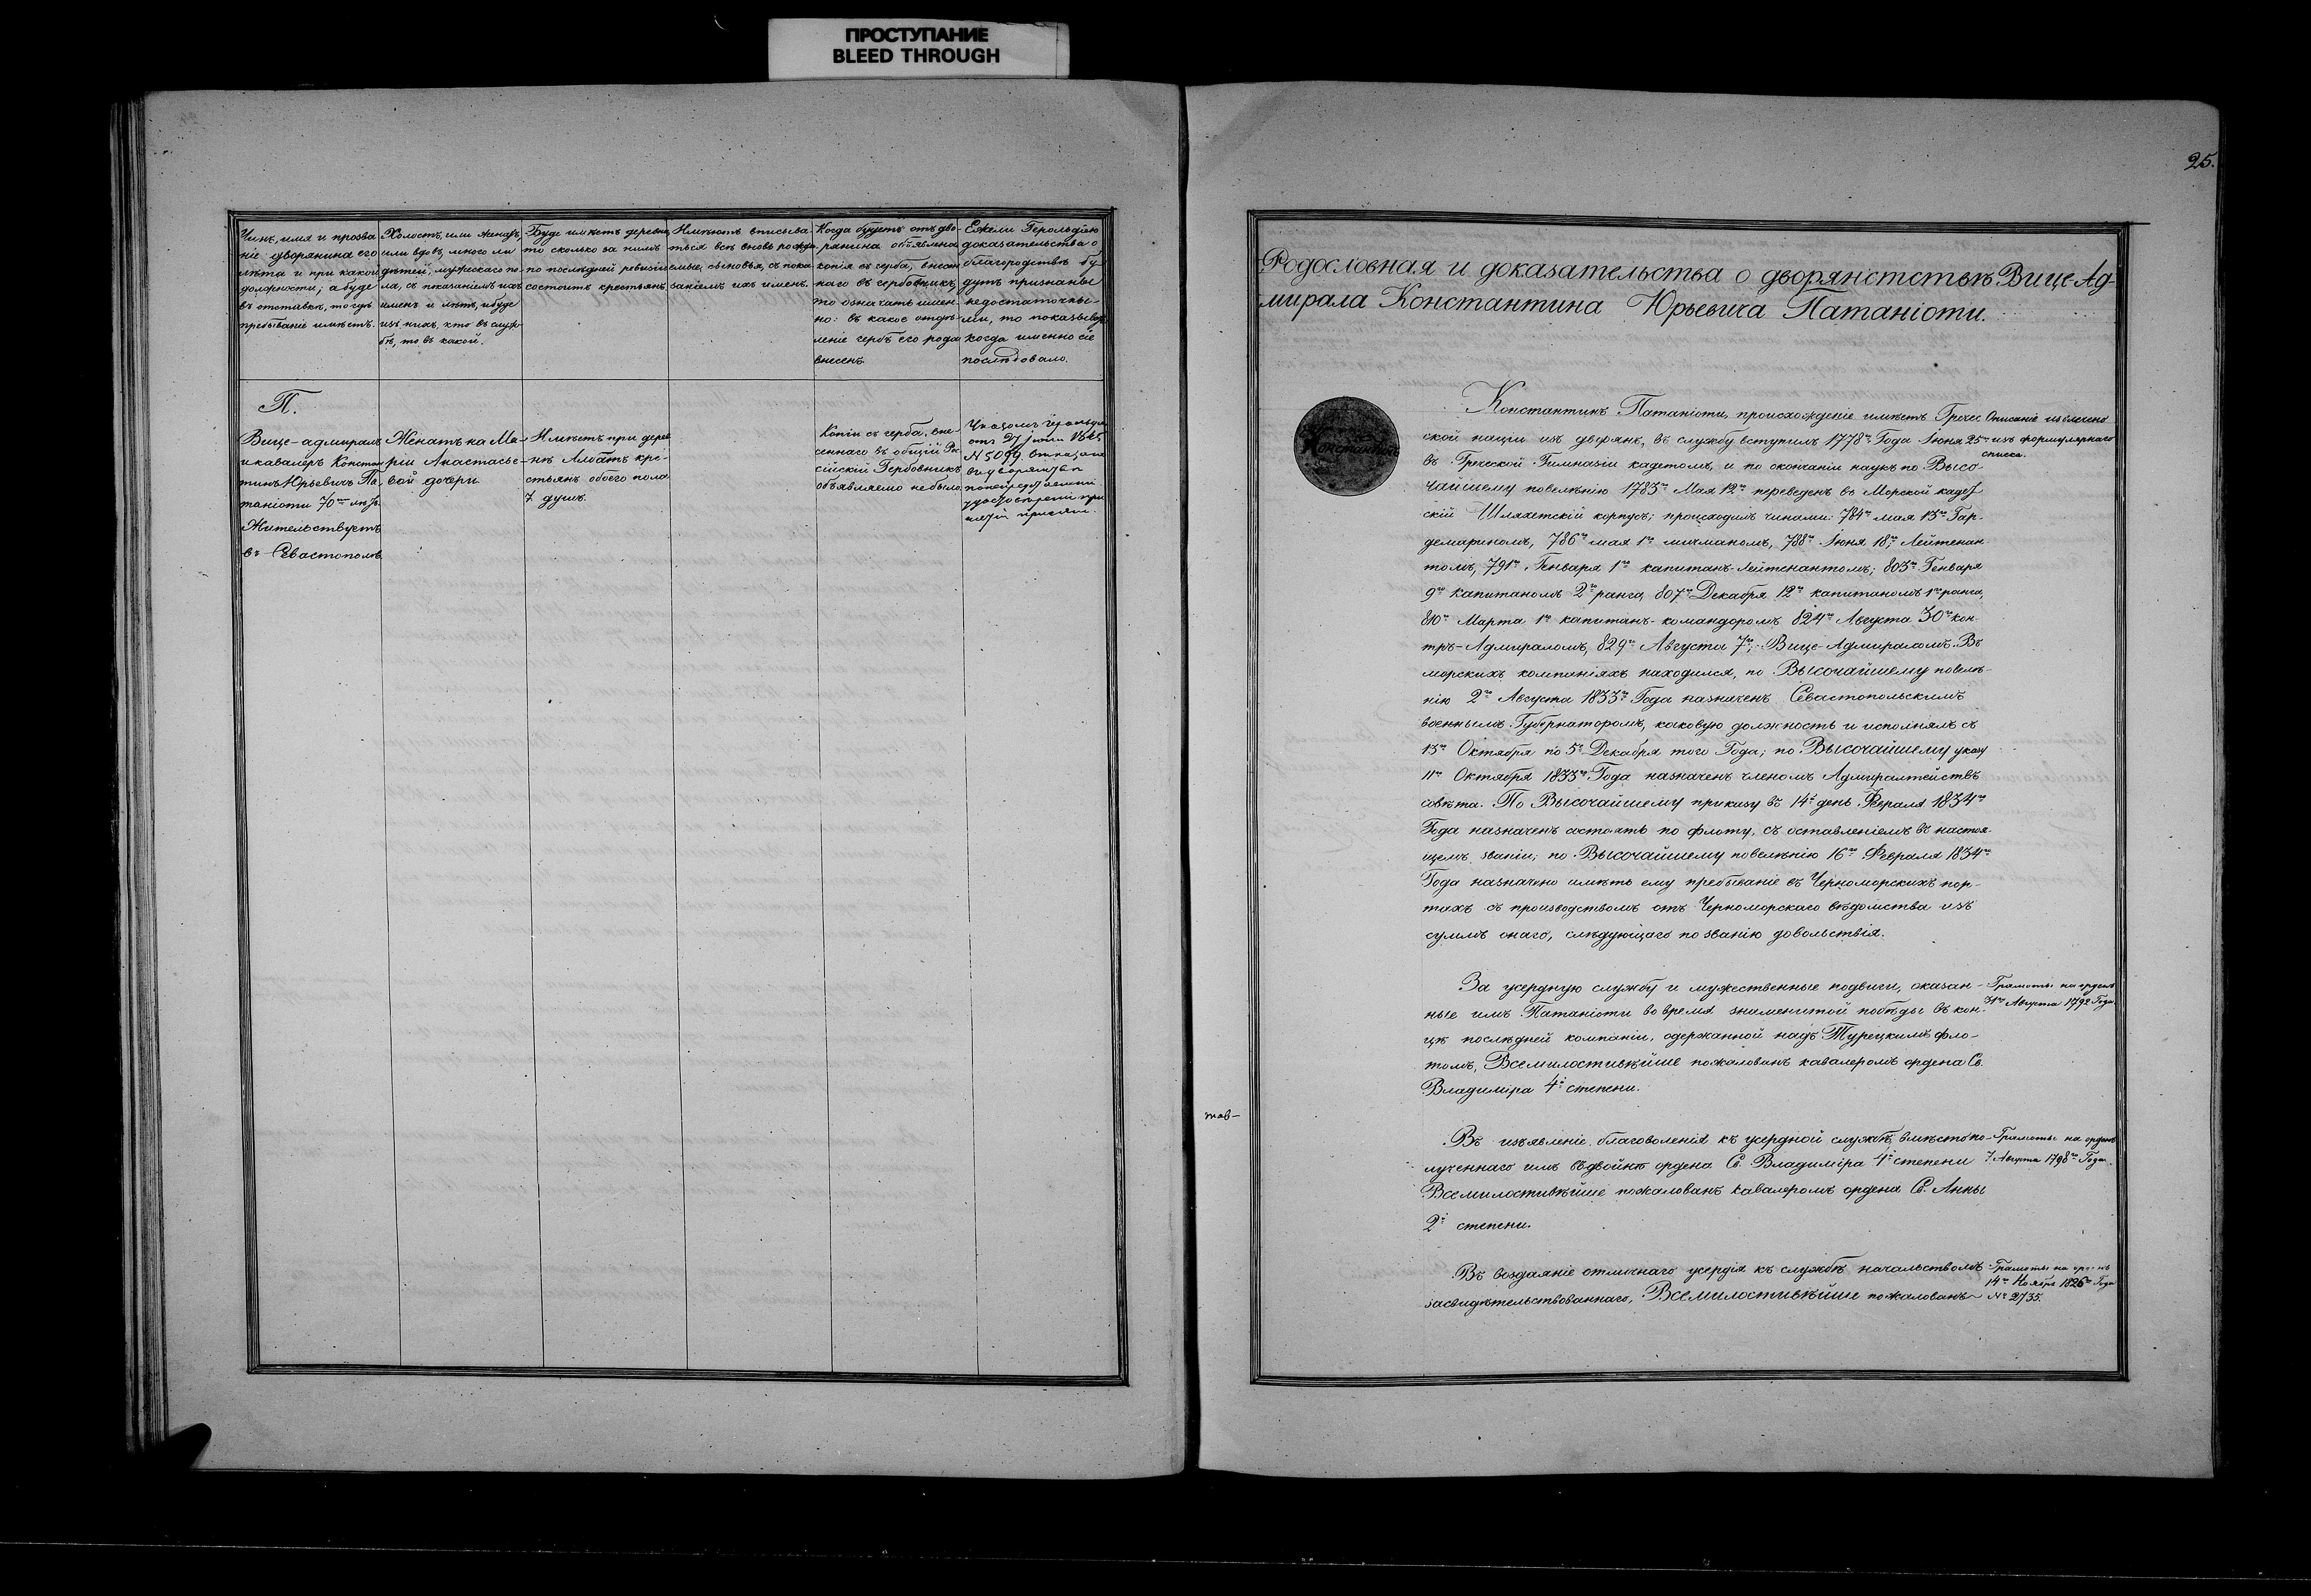 ПРОСТУПАНИЕ
BLEED THROUGH
Чинъ, имя и прозва
ніе дворянина его
лѣта и при какой
должности; а буде
въ отставкѣ, то гдѣ
пребываніе имѣетъ.
Холостъ, или женатъ,
или вдовъ, много ли
дѣтей, мужескаго по-
ла, съ показаніемъ ихъ
именъ и лѣтъ, и буде
изъ нихъ, кто въ служ-
бѣ, то въ какой.
Буде имѣетъ деревни,
то сколько за нимъ
по послѣдней ревизіи
состоитъ крестьянъ
Имѣютъ вписыва-
ться всѣ вновь рожда-
емые, сыновья, съ пока
заніемъ ихъ именъ.
Когда будетъ отъ дво-
рянина объявлена
копія съ герба, внесен
наго въ гербовникъ,
то означать имен-
но: въ какое отдѣ-
леніе гербъ его рода
внесенъ.
Ежели Герольдіею
доказательства о
благородствѣ бу-
дутъ признаны
недостаточны-
ми, то показывать
когда именно сіе
послѣдовало.
П.
Вице-адмиралъ
и кавалеръ Констан
тинъ Юрьевичъ Па-
таніоти 70ти лѣтъ.
Жительствуетъ
въ Севастополѣ.
Женатъ на Ма-
ріи Анастасье-
вой дочери
Имѣетъ при дерев
нѣ Албатъ кре-
стьянъ обоего пола
7 душъ.
Копіи съ герба, вне-
сеннаго въ общій Рос
сійскій Гербовникъ
объявляемо не было
отъ 27
№ 5099
25.
Родословная и доказательства о дворянстствѣ Вице-Ад-
мирала Константина Юрьевича Патаніоти.
Константинъ
Константинъ Патаніоти, происхожденіе имѣетъ Гречес
ской націи изъ дворянъ, въ службу вступилъ 1778го Года Іюня 25го
въ Греческой Гимназіи кадетомъ, и по окончаніи наукъ по Высо-
чайшему повелѣнію 1783го Мая 12го переведенъ въ Морской кадет
скій Шляхетскій корпусъ; происходилъ чинами: 784го мая 13го Гар-
демариномъ, 786го мая 1го мичманомъ, 788го Іюня 18го, Лейтенан
томъ, 791го, Генваря 1го капитанъ-лейтенантомъ; 803го Генваря
9го капитаномъ 2го ранга, 807го Декабря 12го капитаномъ 1го ранга,
810го Марта 1го капитанъ-командоромъ 824го Августа 30го кон-
тръ-Адмираломъ, 829го Августа 7го, Вице-Адмираломъ. Въ
морскихъ компаніяхъ находился, по Высочайшему повелѣ-
нію 2го Августа 1833го Года назначенъ Севастопольскимъ
военнымъ Губернаторомъ, каковую должность и исполнялъ съ
13го Октября по 5е Декабря того Года; по Высочайшему указу
11го Октября 1833го Года назначенъ членомъ Адмиралтействъ
совѣта. По Высочайшему приказу въ 14й день Февраля 1834го
Года назначенъ состоять по флоту, съ оставленіемъ въ настоя-
щемъ званіи; по Высочайшему повелѣнію 16го Февраля 1834го
Года назначено имѣть ему пребываніе въ Черноморскихъ пор-
тахъ съ производствомъ отъ Черноморскаго вѣдомства изъ
суммъ онаго, слѣдующаго по званію довольствія.
Описаніе извлечено
изъ формулярнаго
списка.
За усердную службу и мужественные подвиги, оказан-
ные имъ Патаніоти во время знаменитой побѣды въ кон-
цѣ послѣдней компаніи, одержанной надъ Турецкимъ фло-
томъ, Всемилостивѣйше пожалованъ кавалеромъ ордена Св.
Владиміра 4й степени.
Грамоты на орденъ
31го Августа 1792 Года.
тов-
Въ изъявленіе благоволенія къ усердной службѣ, вмѣсто по-
лученнаго имъ вдвойнѣ ордена Св. Владиміра 4й степени
Всемилостивѣйше пожалованъ кавалеромъ ордена Св. Анны
2й степени.
Грамоты на орденъ
7 Августа 1798го Года.
Въ воздаяніе отличнаго усердія къ службѣ начальствомъ
засвидѣтельствованнаго, Всемилостивѣйше пожалованъ
Грамоты на орденъ
14го Ноября 1826го Года
№ 2735.